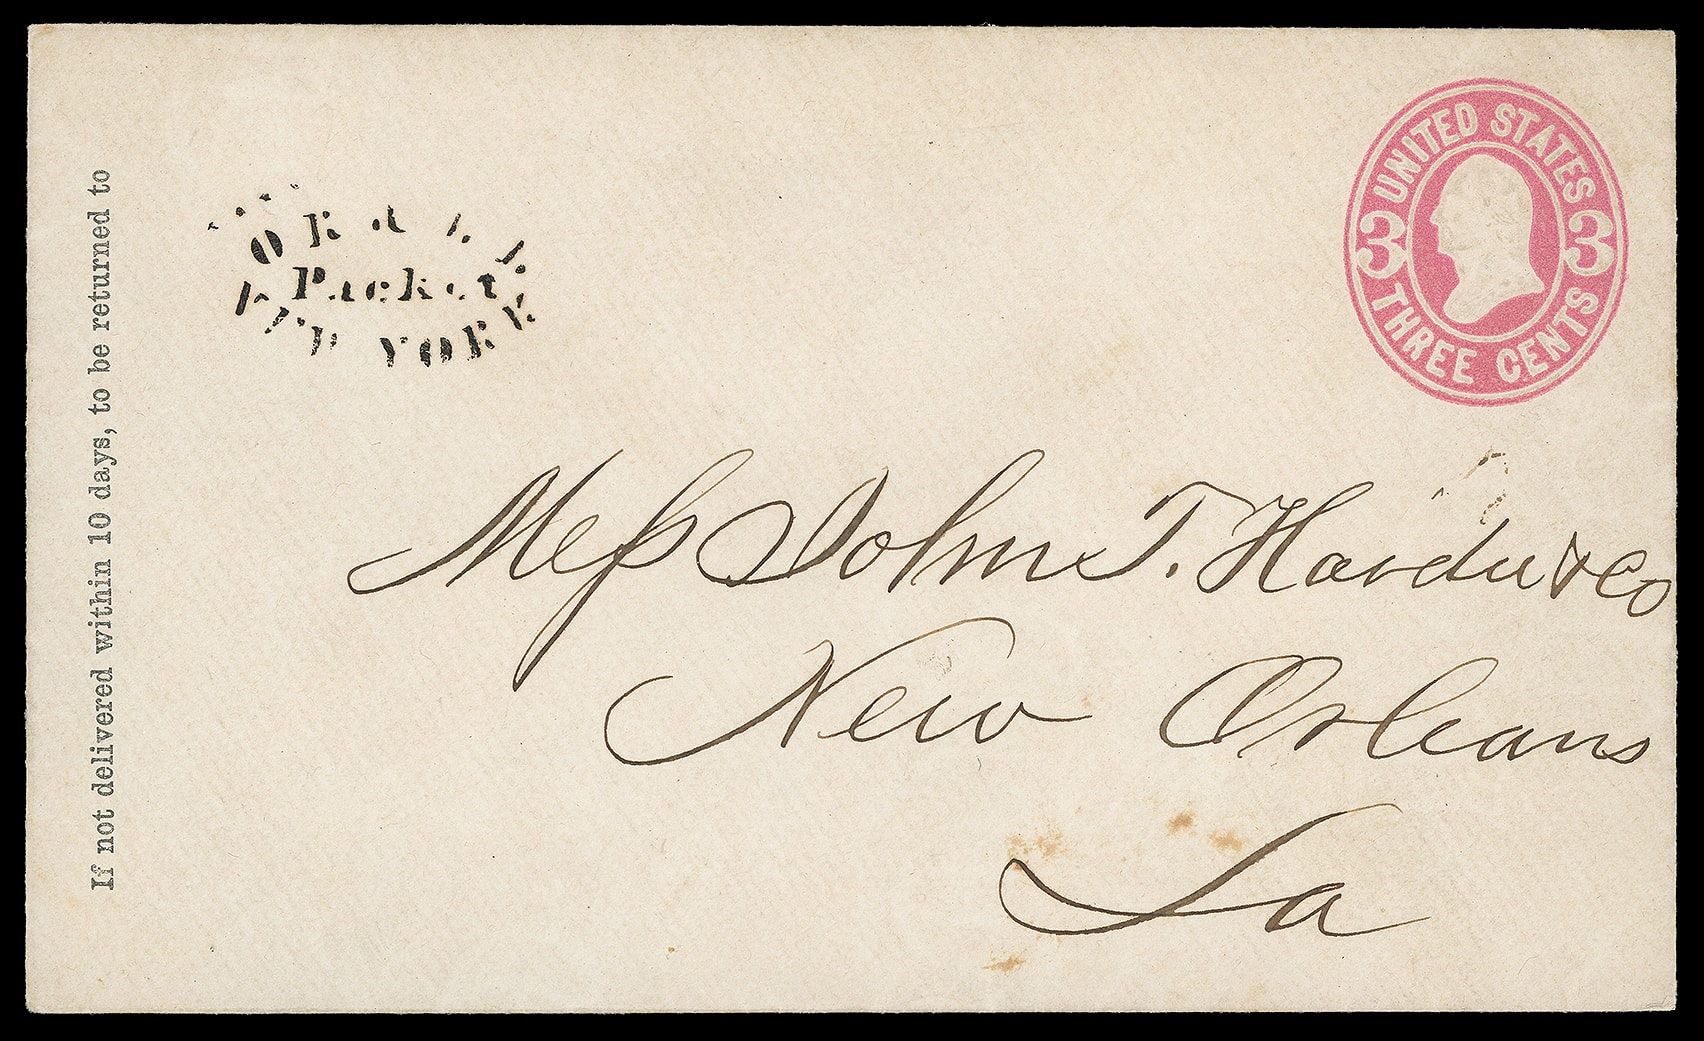 UNITED STATES
3 3
THREE CENTS
Packet
YORK
If not delivered within 10 days, to be returned to
Mess John T. Hardie & Co
New Orleans
La